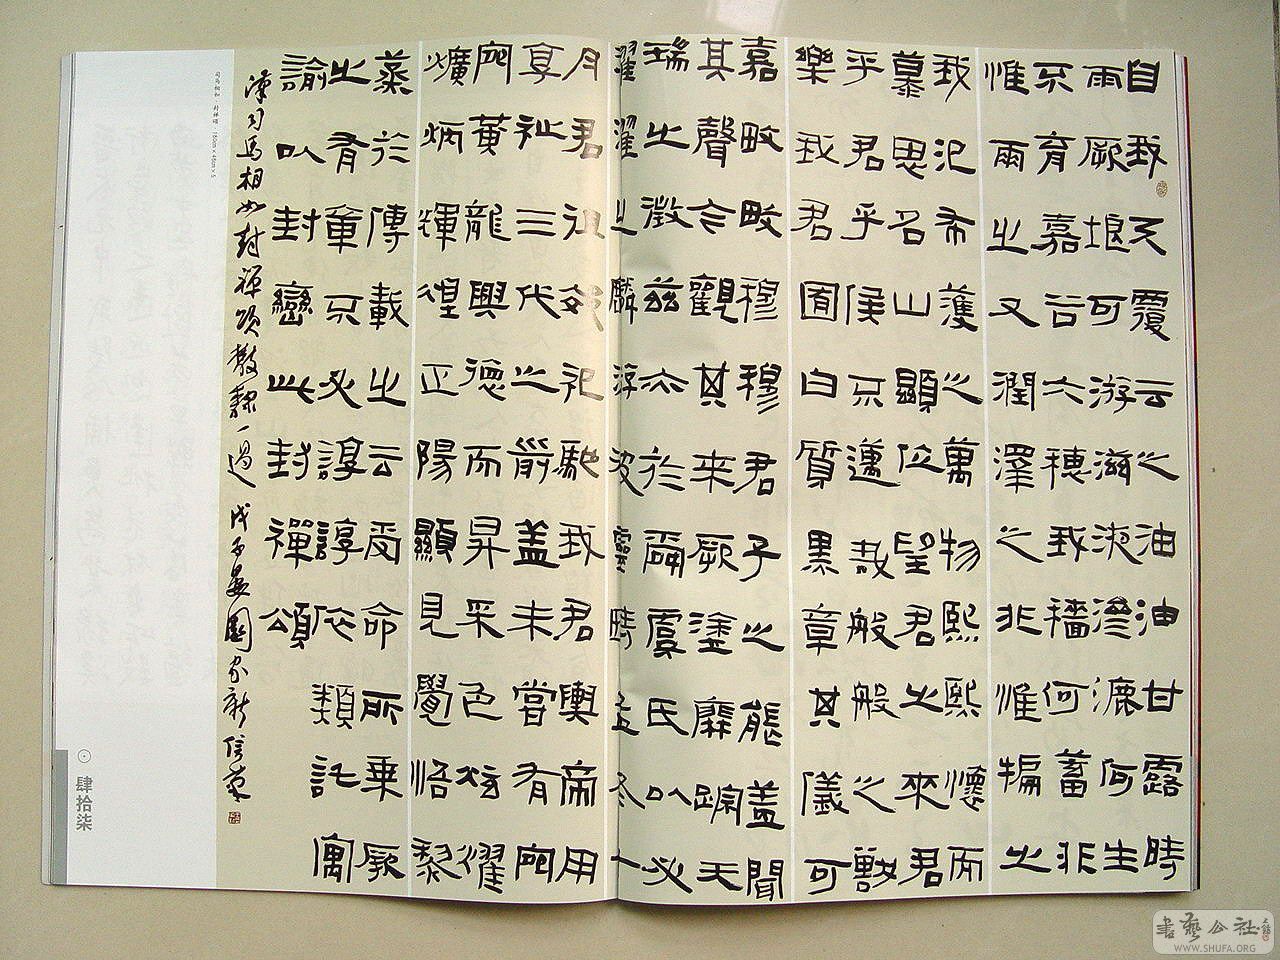 自我天覆云之油油甘露時
雨厥壤可游滋液滲漉何生
不育嘉谷六穗我穡何蓄非
惟雨之又潤澤之非惟徧之
我氾布護之萬物熙熙懷而
慕思名山顯位望君之來君
乎君乎侯不邁哉般般之獸
樂我君囿白質黑章其儀可
嘉旼旼穆穆君子之態蓋聞
其聲今觀其來厥塗靡蹤天
瑞之徵茲亦於舜虞氏以
濯濯之麟游彼靈畤孟冬十
月君徂郊祀馳我君輿帝用
享祉三代之前蓋未嘗有宛
宛黃龍興德而昇采色炫耀
熿炳輝煌正陽顯見覺悟黎
蒸於傳載之云受命所乘厥
之有章不必諄諄依類託寓
諭以封巒此封禪頌
漢司馬相如封禪頌 一過 戊子
司馬相如·封禪頌
肆拾柒
書藝公社
WWW.SHUFA.ORG